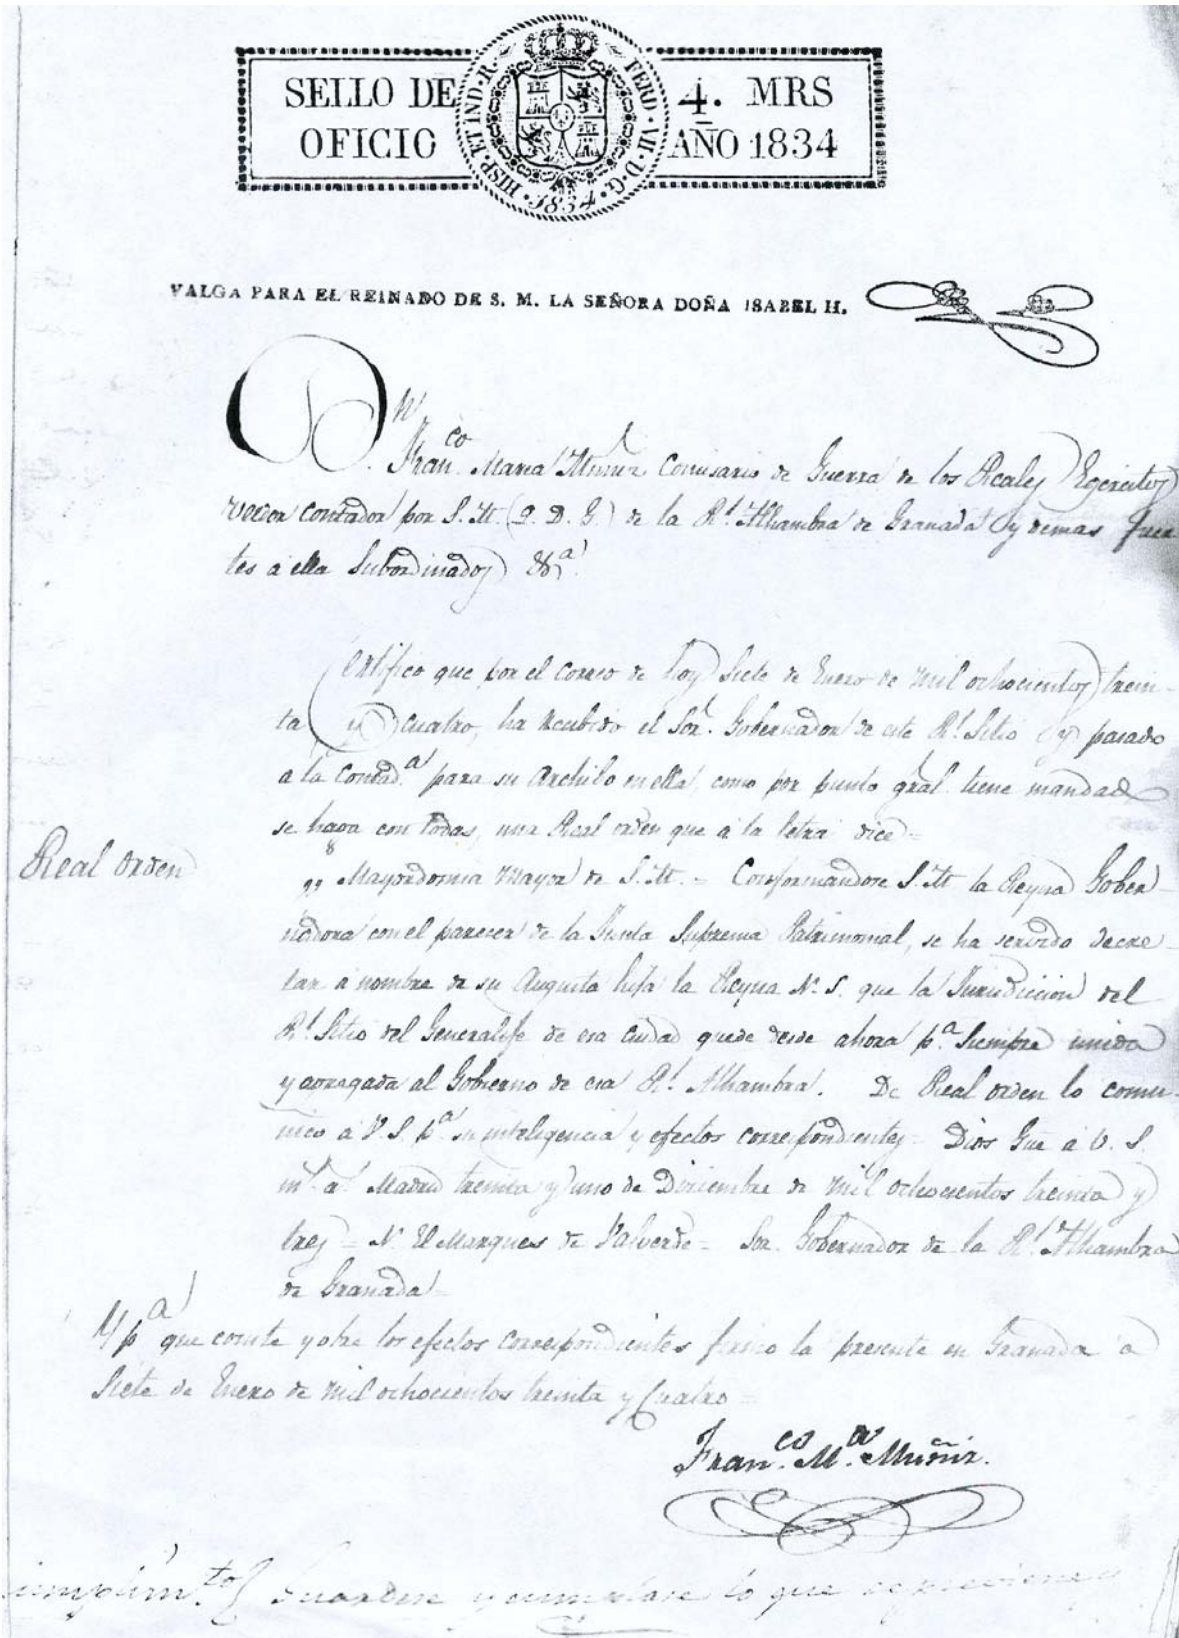 SELLO DE
OFICIO
HISP. ET IND. R. FERD. VII. D. G.
1834
4. MRS
AÑO 1834
VALGA PARA EL REINADO DE S. M. LA SEÑORA DOÑA ISABEL II.
Dn
Franco. Maria Muñiz Comisario de Guerra de los Reales Egercitos
veedor contador por S. M. (Q. D. G.) de la Rl. Alhambra de Granada y demas fuer
tes á ella Subordinados &a.
Certifico que por el Correo de hoy Siete de Enero de mil ochocientos trein-
ta y cuatro, ha recibido el Sor. Gobernador de este Rl. Sitio y pasado
á la Contada. para su Archibo en ella, como por punto gral. tiene mandado
se haga con todas, una Real orden que á la letra dice =
Real orden
,, Mayordomia mayor de S. M. = Conformandose S. M. la Reyna Gober-
nadora con el parecer de la Junta Suprema Patrimonial, se ha servido decre-
tar á nombre de su Augusta hija la Reyna N. S. que la Jurisdiccion del
Rl. Sitio del Generalife de esa ciudad quede desde ahora pa. Siempre unida
y agregada al Gobierno de esa Rl. Alhambra. De Real orden lo comu-
nico á V. S. pa. su inteligencia y efectos correspondientes = Dios Gue á V. S.
ms. as. Madrid treinta y uno de Diciembre de mil ochocientos treinta y
tres = El Marques de Valverde = Sor. Gobernador de la Rl. Alhambra
de Granada =
Y pa que conste y obre los efectos correspondientes firmo la presente en Granada á
Siete de Enero de mil ochocientos treinta y Cuatro =
Franco. Ma. Muñiz.
Cumplimto. Guardese y cumplase lo que se previene y